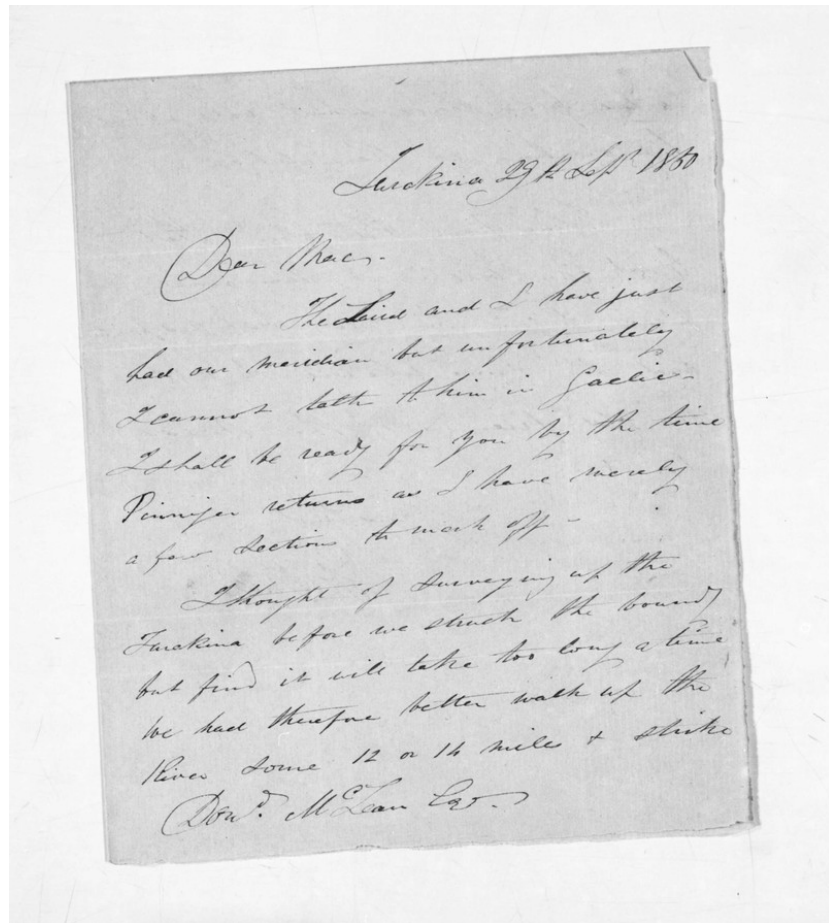 Turakina 29th Sept 1850
Dear Mac.
The Laird and I have just
had our meridian but unfortunately
I cannot talk to him in Gaelic -
I shall be ready for you by the time
Pinniger returns as I have merely
a few sections to mark off -
I thought of surveying up the
Turakina before we struck the boundy
but find it will take too long a time
we had therefore better walk up the
River some 12 or 14 miles & strike
Dond. McLean Esq.